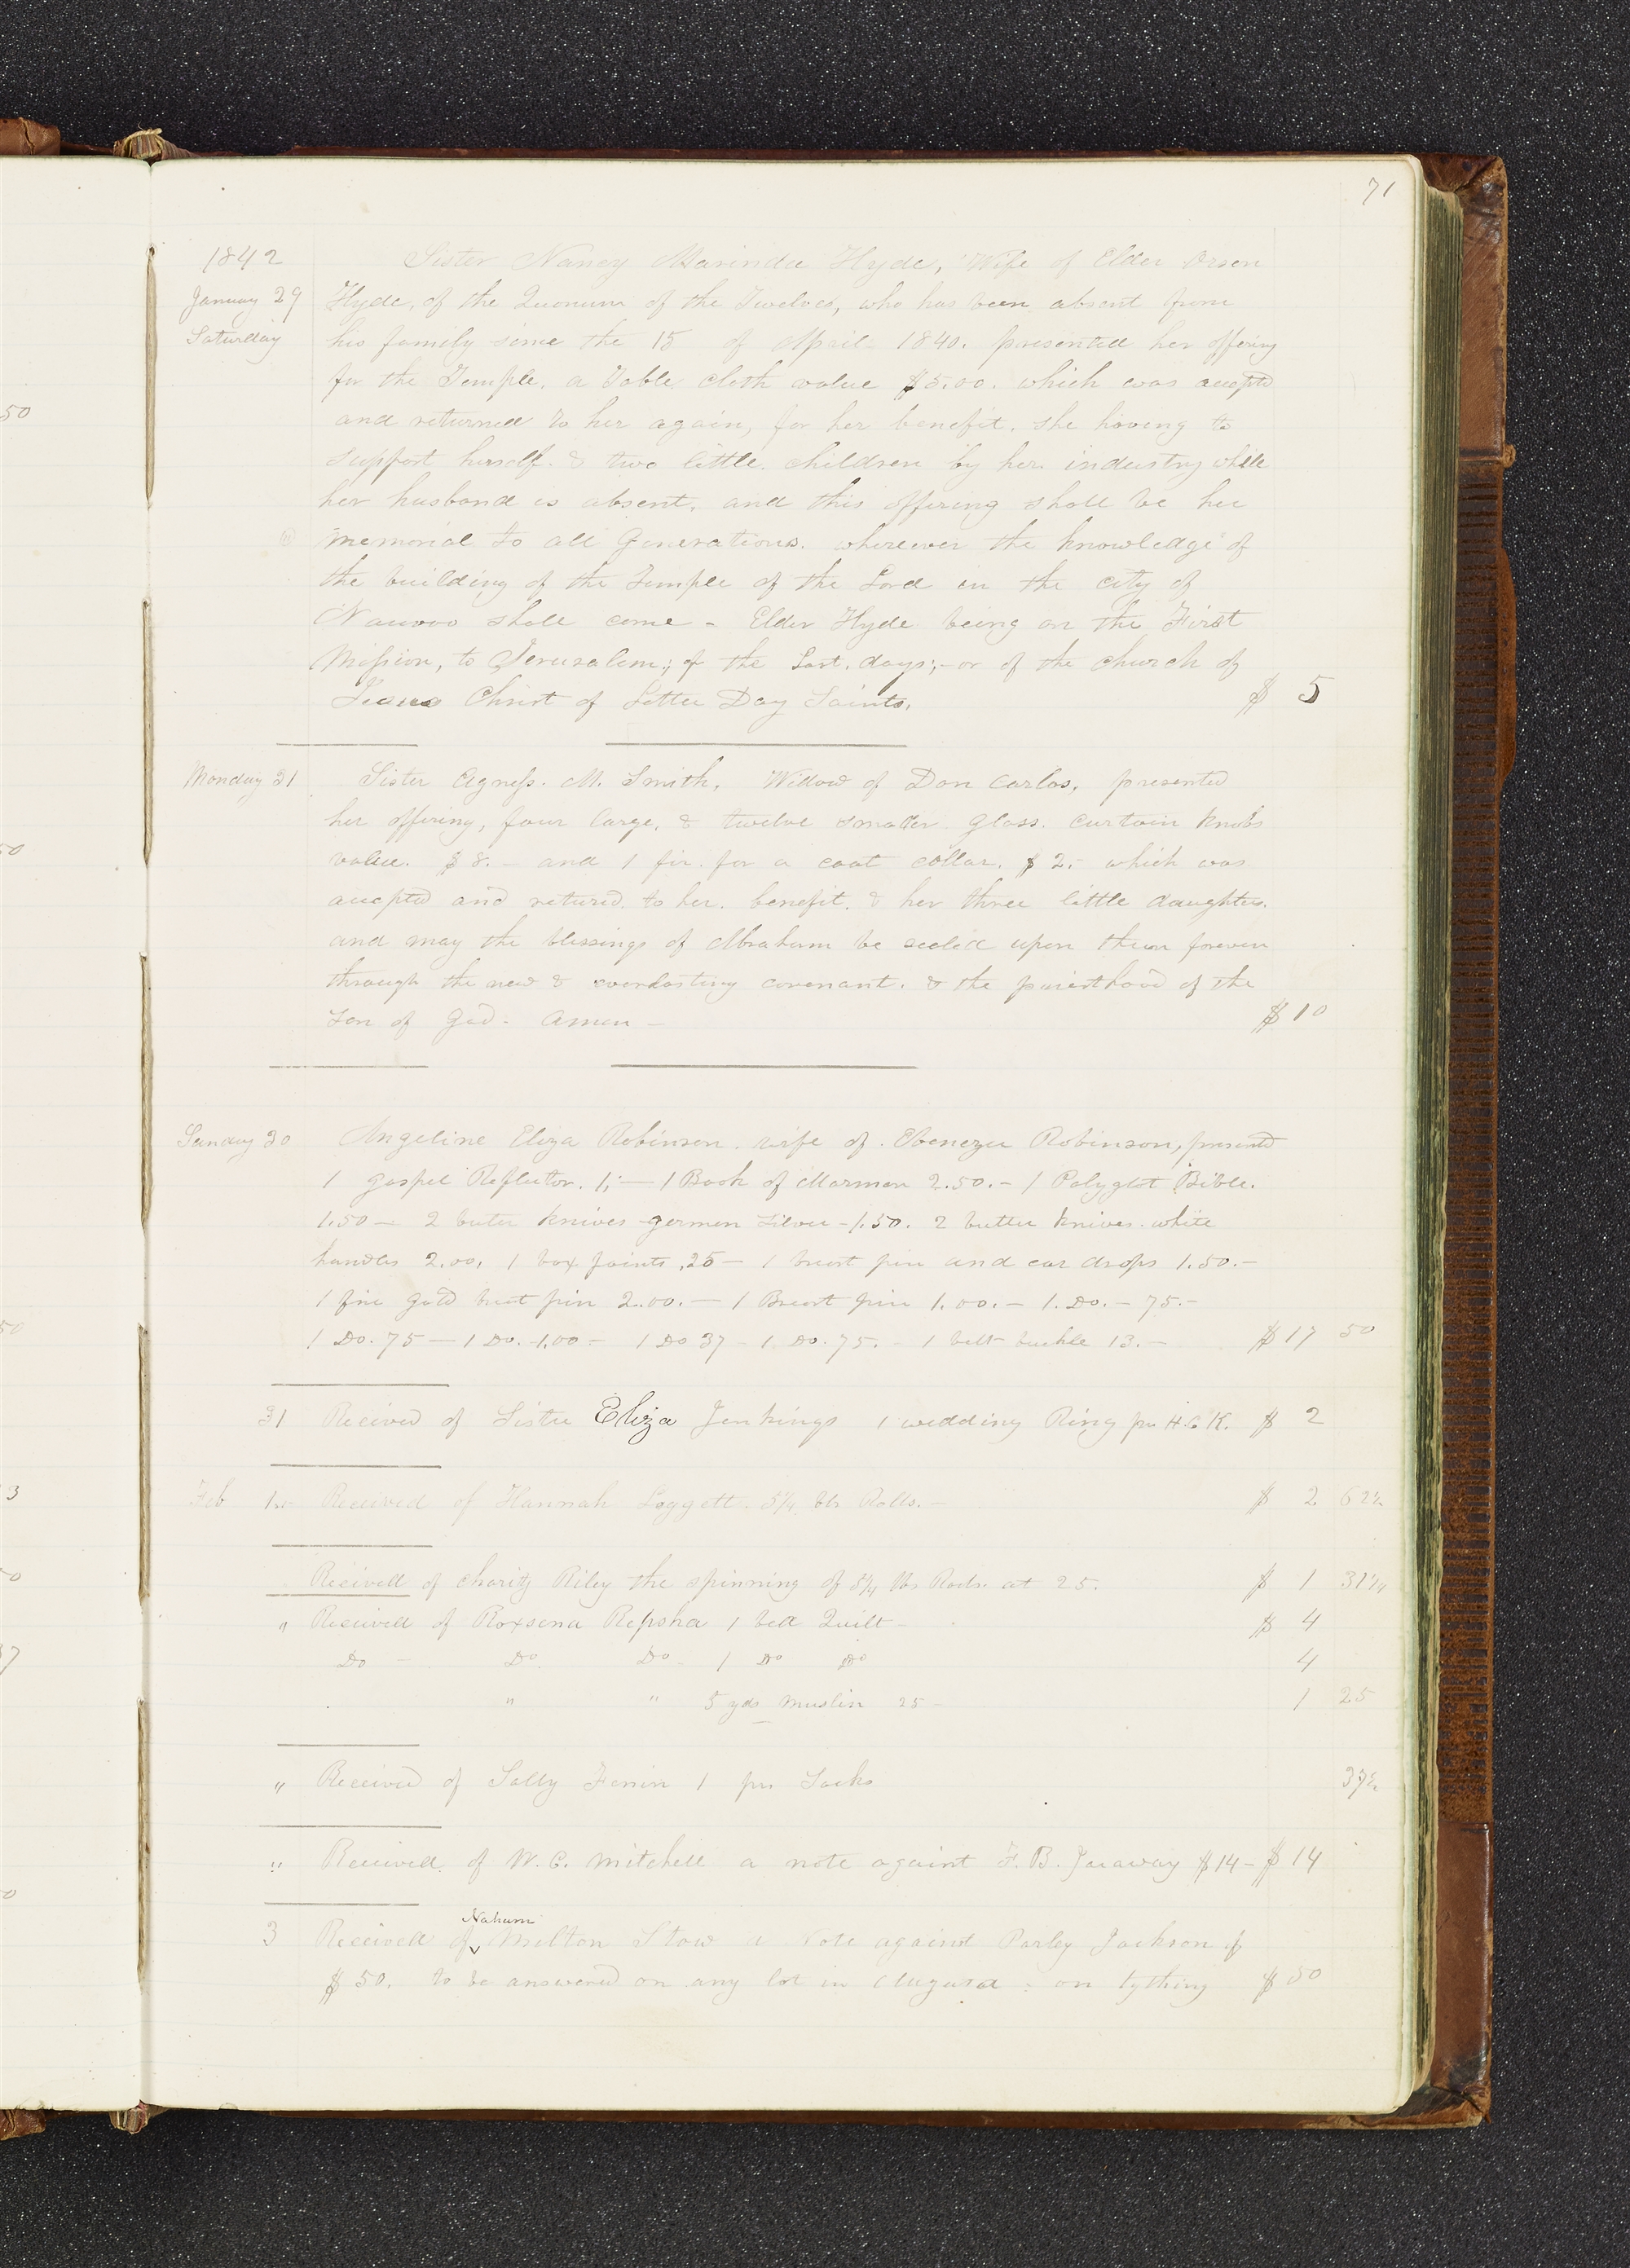 71
1842
January 29
Saturday
Sister Nancy Marinda Hyde, Wife of Elder Orson
Hyde, of the Quorum of the Twelves, who has been absent from
his family since the 15 of April 1840. presented her offering
for the Temple, a Table cloth value $5.00. which was accepted
and returned to her again, for her benefit. she having to
support herself. & two little children by her industry while
her husband is absent, and this offering shall be her
memorial to all Generations. wherever the knowledge of
the building of the Temple of the Lord in the city of
Nauvoo shall come - Elder Hyde being on the First
Mission, to Jerusalem; of the Last. days;- or of the church of
Jesus Christ of Latter Day Saints. $ 5
Monday 31 Sister Agness. M. Smith, Widow of Don Carlos, presented
her offering, four large, & twelve smaller Glass. curtain knobs
value. $8.- and 1 fir. for a coat collar. $2.- which was
accepted and returd. to her. benefit. & her three little daughters.
and may the blessings of Abraham be sealed upon them forever
through the new & everlasting covenant. & the priesthood of the
Son of God. Amen - $10
Sunday 30 Angeline Eliza Robinson. wife of. Ebenezer Robinson, presented
1 Gospel Reflector. 1;- 1 Book of Mormon 2.50.- 1 Polyglot Bible.
1.50 - 2 buter knives german Silver - 1.50. 2 butter knives. white
handles 2.00, 1 box paints ,25 - 1 breast pin and ear drops 1.50.-
1 fine gold breast pin 2.00.- 1 Breast pin 1.00.- 1. Do.- 75.-
1 Do. 75 - 1 Do. 1.00 - 1 Do 37 - 1. Do. 75. - 1 belt buckle 13.- $17 50
31 Received of Sister Eliza Jenkings 1 wedding Ring pr H. C. K. $ 2
Feb 1st Received of Hannah Leggett. 5¼ lbs Rolls.- $ 2 62½
Received of Charity Riley the spinning of 5¼ lbs Rools. at 25. $ 1 31¼
" Received of Roxsena Repsha 1 bed Quilt - $ 4
Do - Do Do - 1 Do Do 4
" " 5 yds muslin 25 - 1 25
" Received of Sally 1 pr Socks 37½
" Received. of W. C. Mitchell a note against F. B. Jacaway $14 - $14
3 Received of Nahum Milton Stow a Note against Parley Jackson of
$50. to be answered on any lot in Augusta : on tything $50